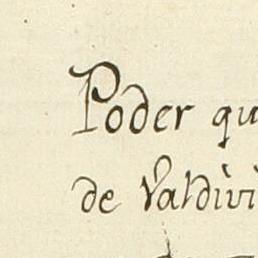 Poder qu
de Valdivi